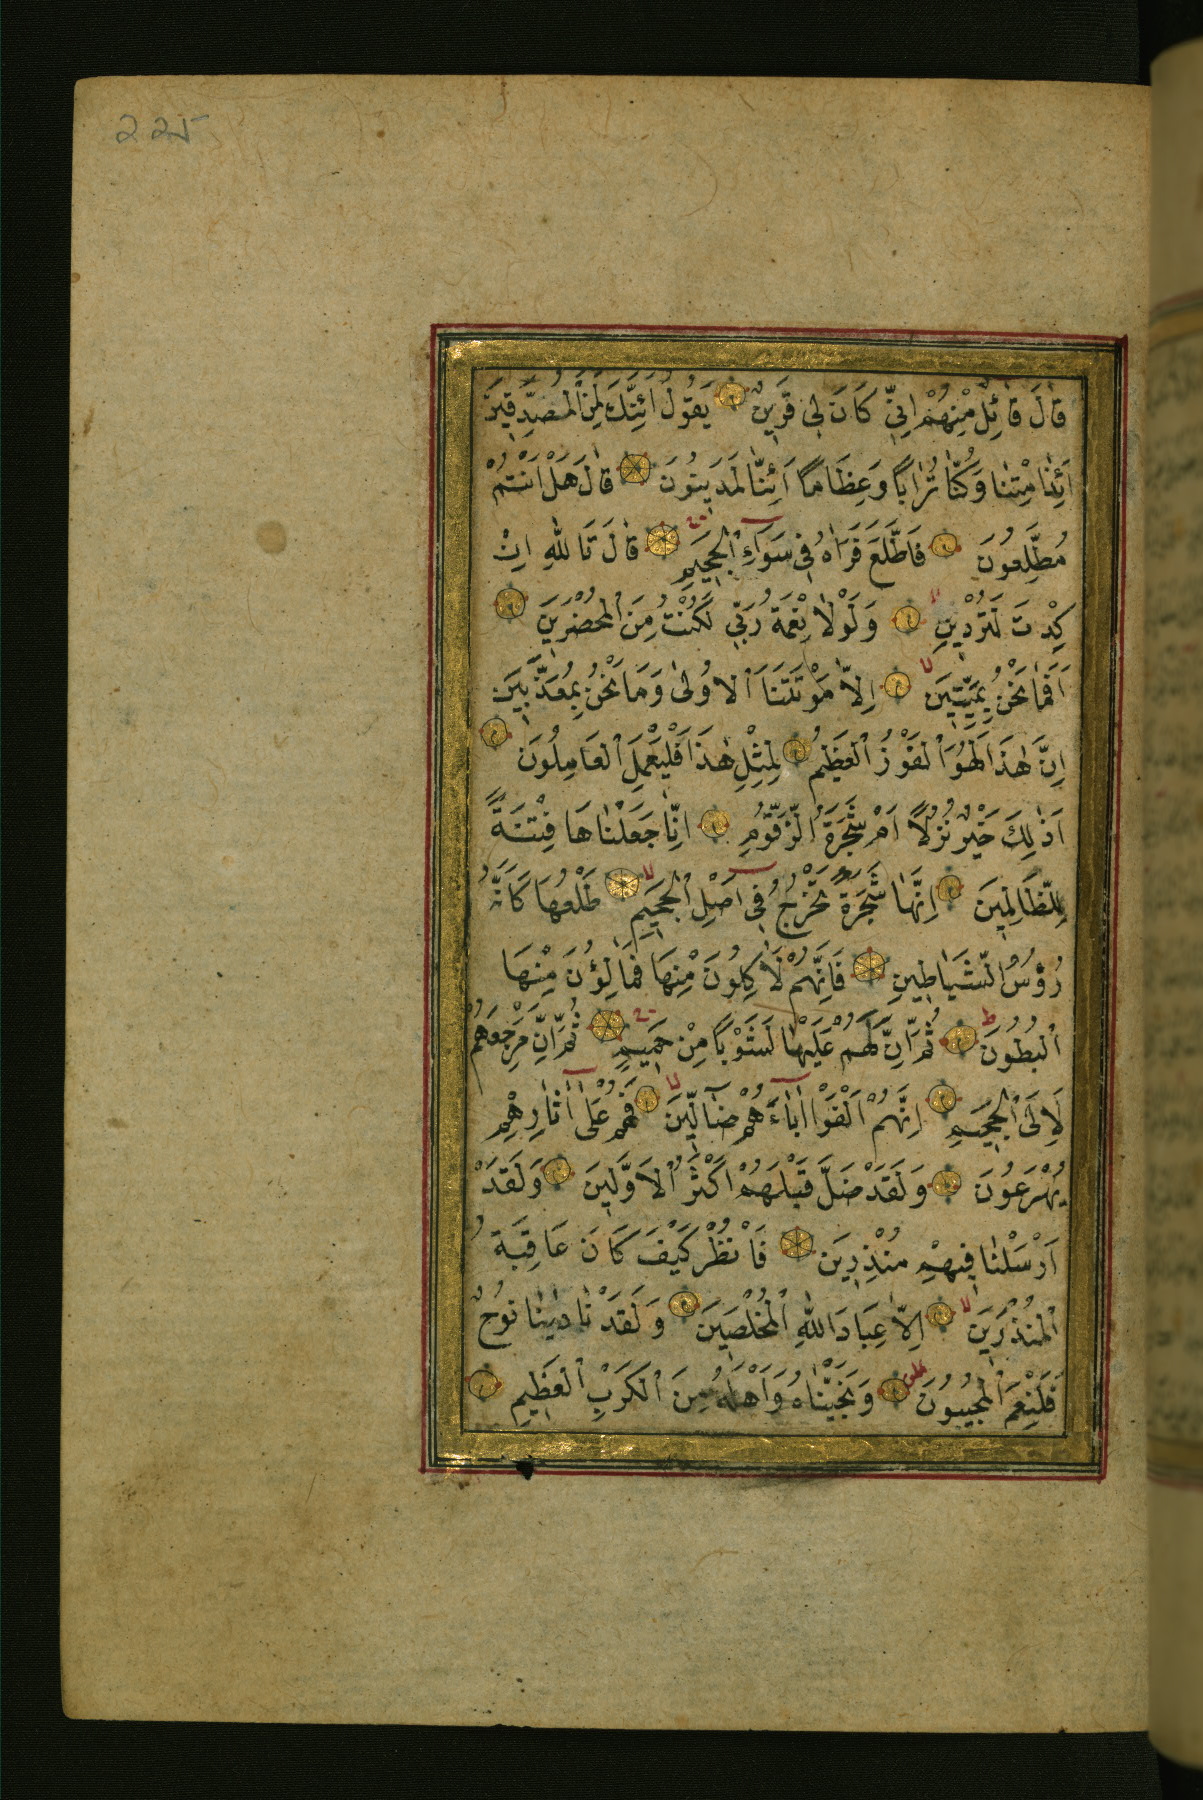 225
قَالَ قَائِلٌ مِنْهُمْ اِنّ۪ي كَانَ ل۪ي قَر۪ينٌ يَقُولُ اَئِنَّكَ لَمِنَ الْمُصَدِّق۪ينَ
اَئِذَا مِتْنَا وَكُنَّا تُرَابًا وَعِظَامًا اَئِنَّا لَمَد۪ينُونَ قَالَ هَلْ اَنْتُمْ
مُطَّلِعُونَ فَاطَّلَعَ فَرَاٰهُ ف۪ي سَوَاءِ الْجَح۪يمِ قَالَ تَاللّٰهِ اِنْ
كِدْتَ لَتُرْد۪ينِ وَلَوْلَا نِعْمَةُ رَبّ۪ي لَكُنْتُ مِنَ الْمُحْضَر۪ينَ
اَفَمَا نَحْنُ بِمَيِّت۪ينَ اِلَّا مَوْتَتَنَا الْاُولٰى وَمَا نَحْنُ بِمُعَذَّب۪ينَ
اِنَّ هٰذَا لَهُوَ الْفَوْزُ الْعَظ۪يمُ لِمِثْلِ هٰذَا فَلْيَعْمَلِ الْعَامِلُونَ
اَذٰلِكَ خَيْرٌ نُزُلًا اَمْ شَجَرَةُ الزَّقُّومِ اِنَّا جَعَلْنَاهَا فِتْنَةً
لِلظَّالِم۪ينَ اِنَّهَا شَجَرَةٌ تَخْرُجُ ف۪ي اَصْلِ الْجَح۪يمِ طَلْعُهَا كَاَنَّهُ
رُؤُسُ الشَّيَاط۪ينِ فَاِنَّهُمْ لَاٰكِلُونَ مِنْهَا فَمَالِؤُنَ مِنْهَا
الْبُطُونَ ثُمَّ اِنَّ لَهُمْ عَلَيْهَا لَشَوْبًا مِنْ حَم۪يمٍ ثُمَّ اِنَّ مَرْجِعَهُمْ
لَاِلَى الْجَح۪يمِ اِنَّهُمْ اَلْفَوْا اٰبَاءَهُمْ ضَالّ۪ينَ فَهُمْ عَلٰى اٰثَارِهِمْ
يُهْرَعُونَ وَلَقَدْ ضَلَّ قَبْلَهُمْ اَكْثَرُ الْاَوَّل۪ينَ وَلَقَدْ
اَرْسَلْنَا ف۪يهِمْ مُنْذِر۪ينَ فَانْظُرْ كَيْفَ كَانَ عَاقِبَةُ
الْمُنْذَر۪ينَ اِلَّا عِبَادَ اللّٰهِ الْمُخْلَص۪ينَ وَلَقَدْ نَادٰينَا نُوحٌ
فَلَنِعْمَ الْمُج۪يبُونَ وَنَجَّيْنَاهُ وَاَهْلَهُ مِنَ الْكَرْبِ الْعَظ۪يمِ